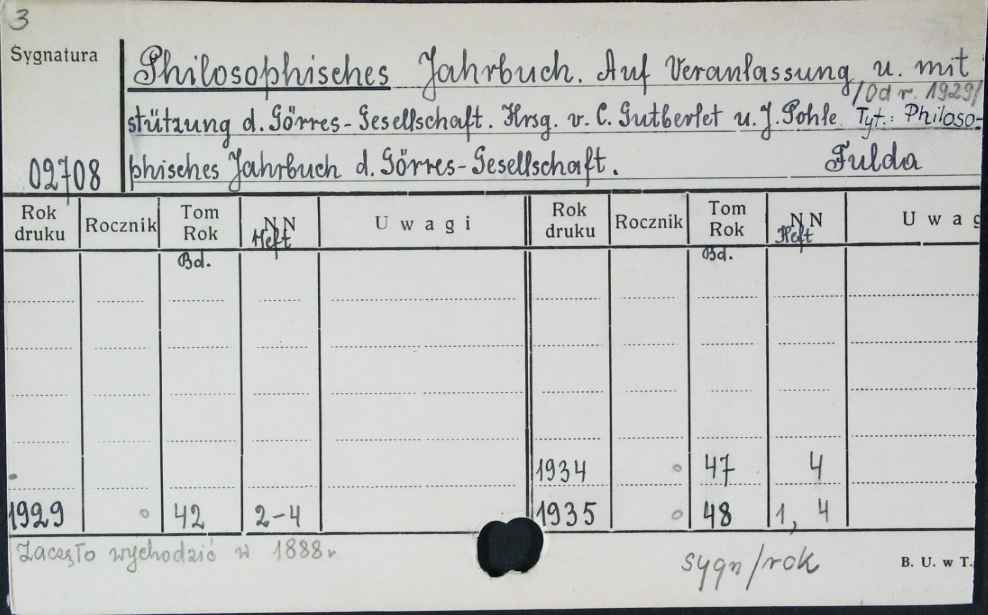 3
Sygnatura
Philosophisches Jahrbuch. Auf Veranlassung u. mit
/Od r. 1929/
stützung d. Görres-Gesellschaft. Hrsg. v. C. Gutberlet u. J. Pohle. Tyt.: Philoso-
02708 phisches Jahrbuch d. Görres-Gesellschaft. Fulda
Rok druku Rocznik Tom Rok NN Uwagi Rok druku Rocznik Tom Rok NN Uwag
Heft Heft
Bd. Bd.
1934 47 4
1929 42 2-4 1935 48 1, 4
Zaczęło wychodzić w 1888r
sygn/rok
B. U. w T.